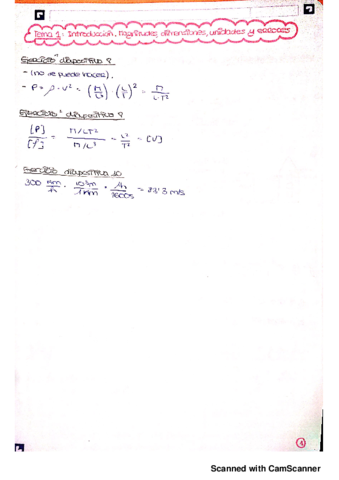 Tema 1: Introducción, magnitudes, dimensiones, unidades y errores
Ejercicio diapositiva 8
- (no se puede hacer).
- P = ρ · v² = (M/L³) · (L/T)² = M/L·T²
Ejercicio diapositiva 9
[P]/[ρ] = M/LT² / M/L³ = L²/T² = [v]
Ejercicio diapositiva 10
300 km/h · 10³m/1km · 1h/3600s = 83'3 m/s
1
Scanned with CamScanner